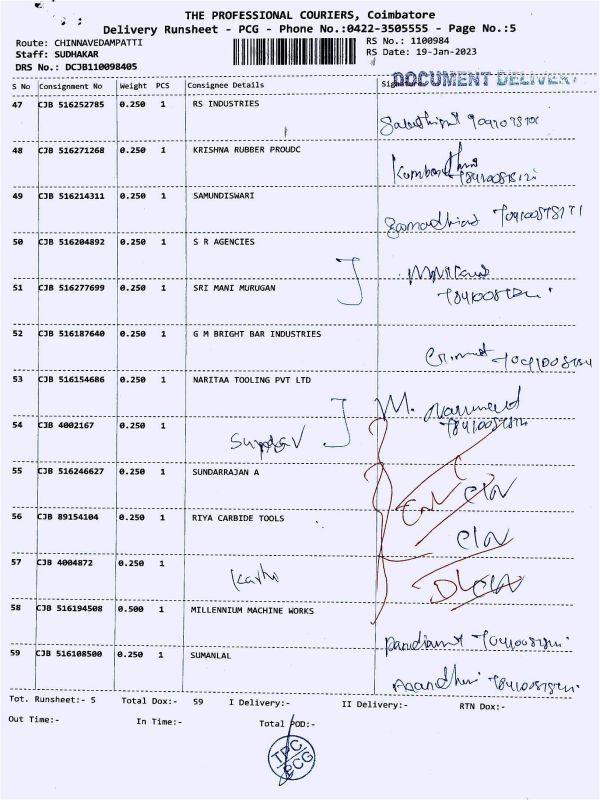 THE PROFESSIONAL COURIERS, Coimbatore
Delivery Runsheet - PCG - Phone No.:0422-3505555 - Page No.:5
Route: CHINNAVEDAMPATTI
RS No.: 1100984
Staff: SUDHAKAR
RS Date: 19-Jan-2023
DRS No.: DCJB110098405
DOCUMENT DELIVERY
S No Consignment No Weight PCS Consignee Details Signature
47 CJB 516252785 0.250 1 RS INDUSTRIES
48 CJB 516271268 0.250 1 KRISHNA RUBBER PROUDC
49 CJB 516214311 0.250 1 SAMUNDISWARI
50 CJB 516204892 0.250 1 S R AGENCIES
51 CJB 516277699 0.250 1 SRI MANI MURUGAN
52 CJB 516187640 0.250 1 G M BRIGHT BAR INDUSTRIES
53 CJB 516154686 0.250 1 NARITAA TOOLING PVT LTD
54 CJB 4002167 0.250 1
55 CJB 516246627 0.250 1 SUNDARRAJAN A
56 CJB 89154104 0.250 1 RIYA CARBIDE TOOLS
57 CJB 4004872 0.250 1
58 CJB 516194508 0.500 1 MILLENNIUM MACHINE WORKS
59 CJB 516108500 0.250 1 SUMANLAL
Tot. Runsheet:- 5 Total Dox:- 59 I Delivery:- II Delivery:- RTN Dox:-
Out Time:- In Time:- Total POD:-
TPC
PCG